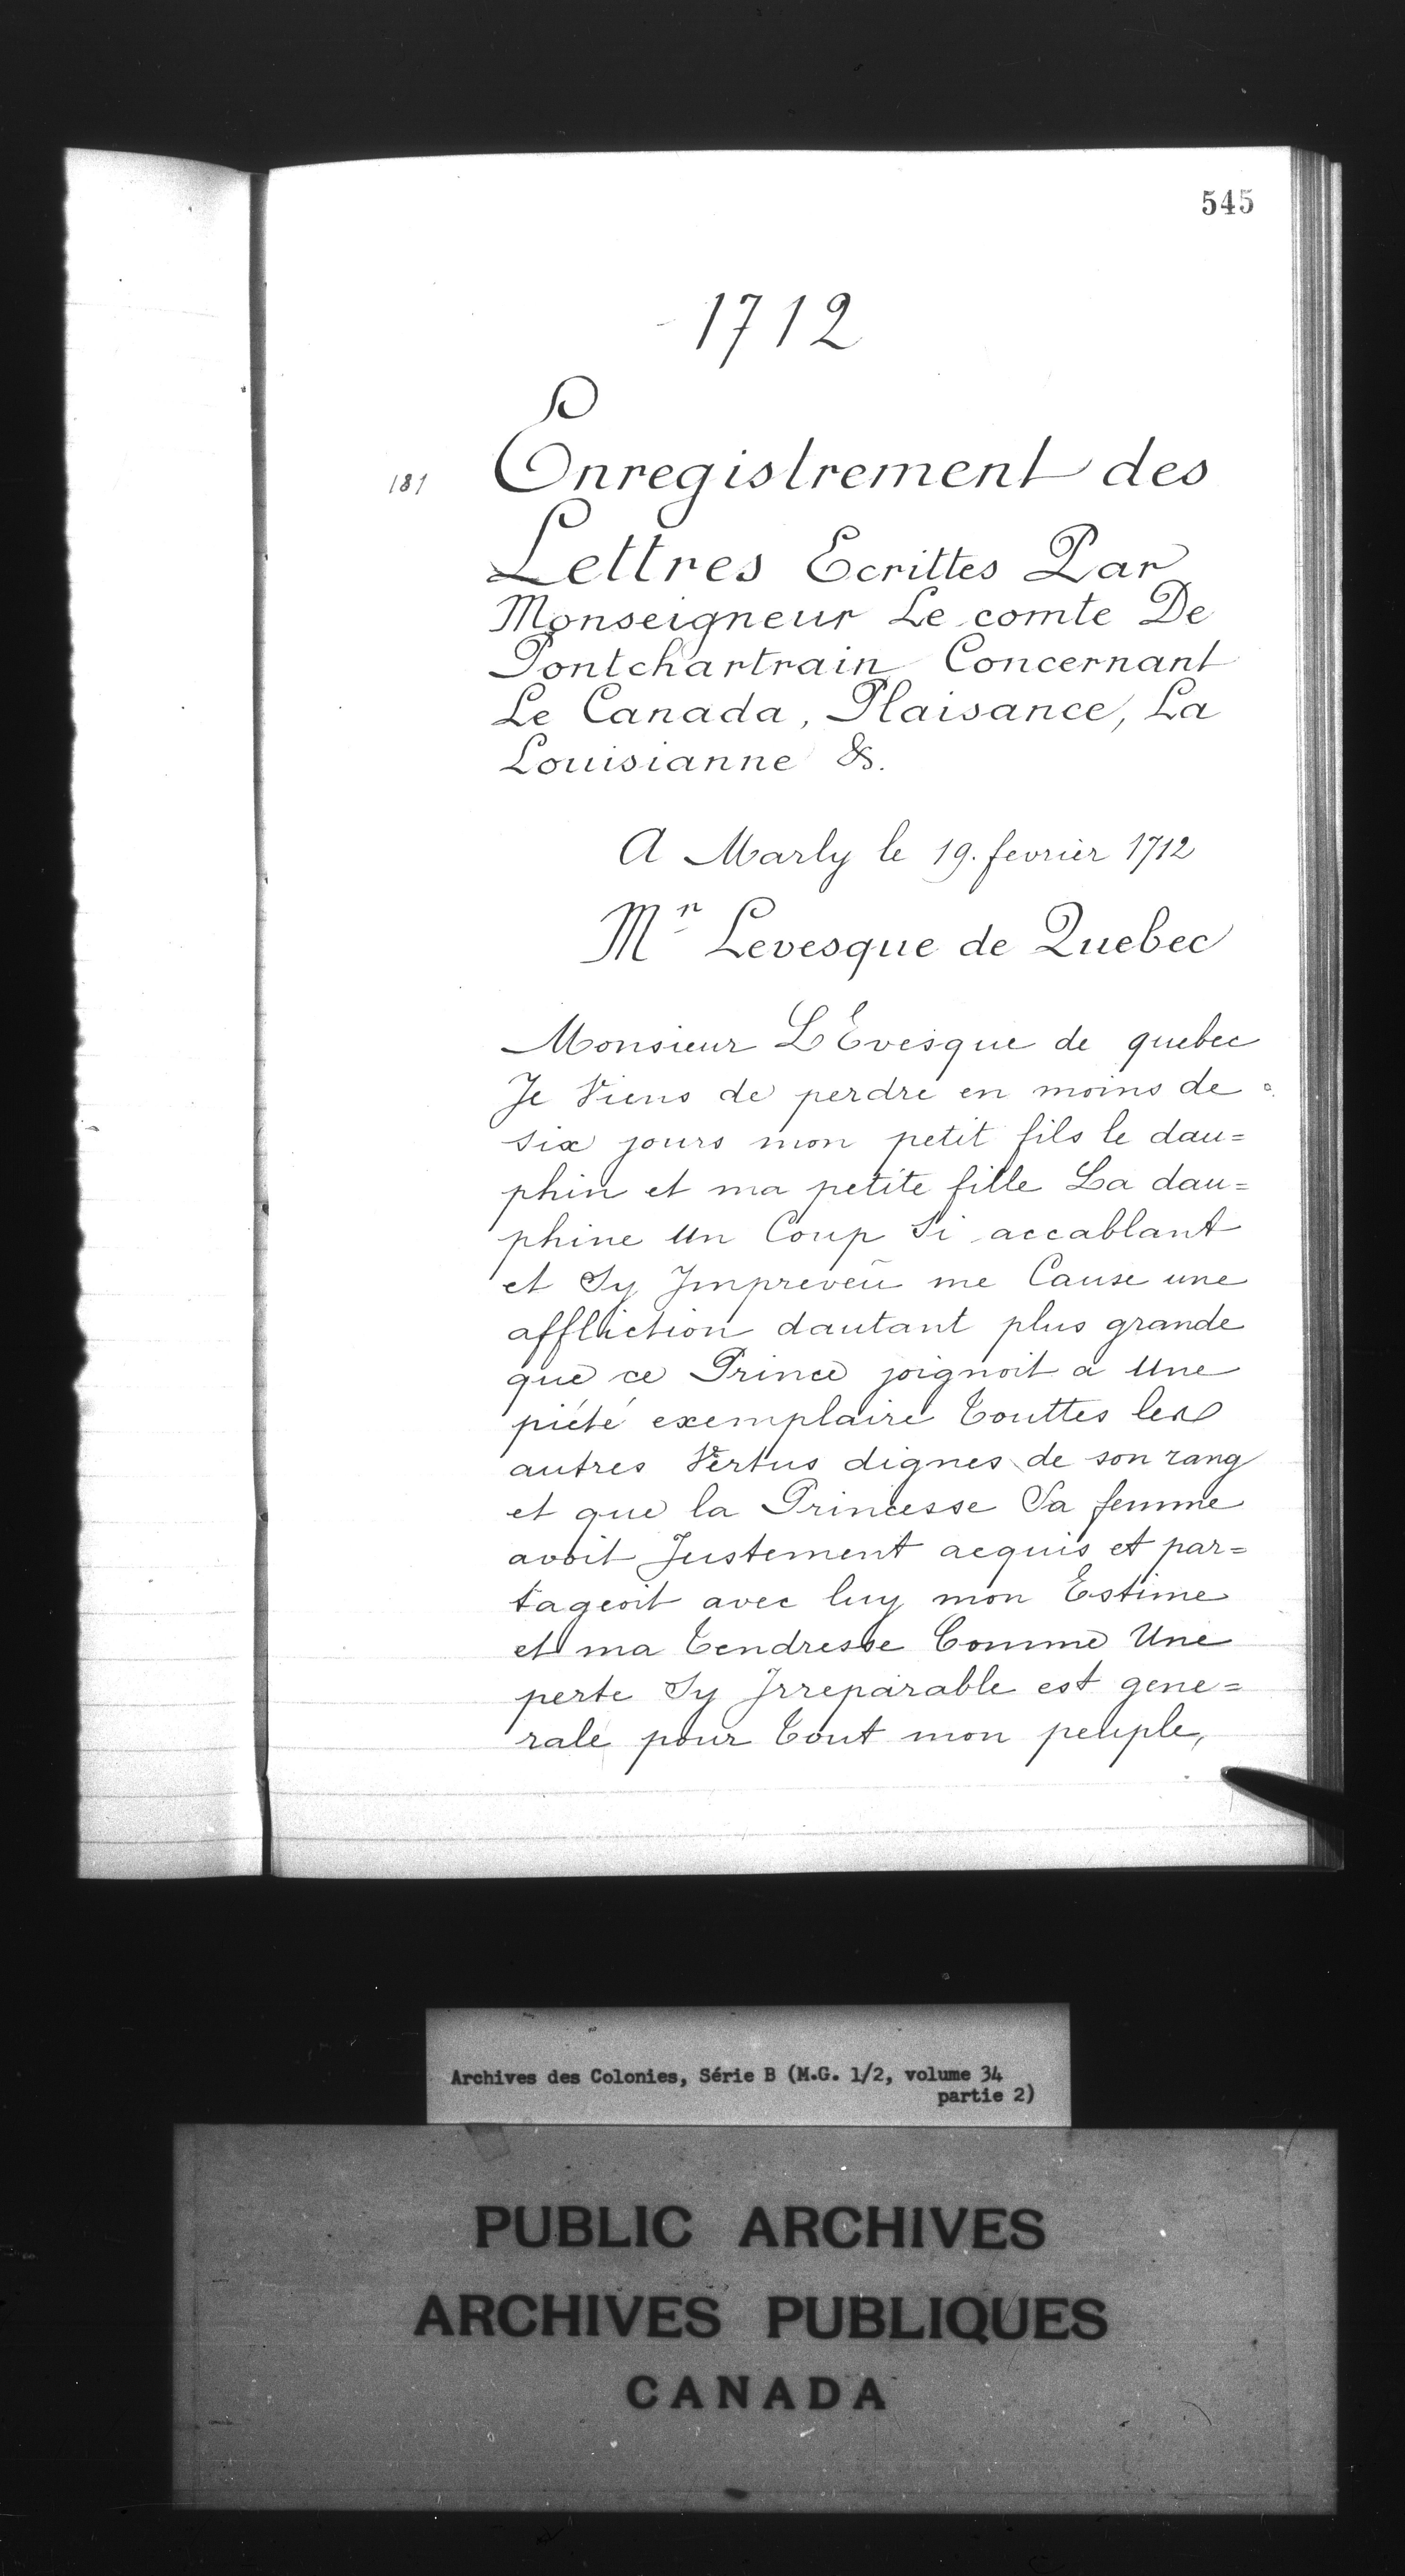 545
1712
181
Enregistrement des
Lettres Ecrittes Par
Monseigneur Le comte De
Pontchartrain Concernant
Le Canada, Plaisance, La
Louisianne &.
A Marly le 19. fevrier 1712
Mr Levesque de Quebec
Monsieur L'Evesque de quebec
Je Viens de perdre en moins de
six jours mon petit fils le dau=
phin et ma petite fille La dau=
phine Un Coup Si accablant
et Sy Impreveü me Cause une
affliction dautant plus grande
que ce Prince joignoit a Une
piété exemplaire Touttes les
autres Vertus dignes de son rang
et que la Princesse Sa femme
avoit Justement acquis et par=
tageoit avec luy mon Estime
et ma Tendresse Comme Une
perte Sy Irreparable est gene=
rale pour Tout mon peuple,
Archives des Colonies, Série B (M.G. 1/2, volume 34
partie 2)
PUBLIC ARCHIVES
ARCHIVES PUBLIQUES
CANADA